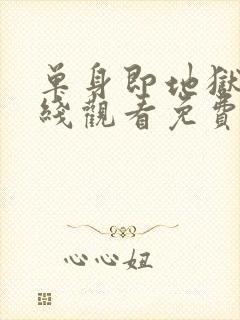 单身即地獄
綫觀看免費
心心妞